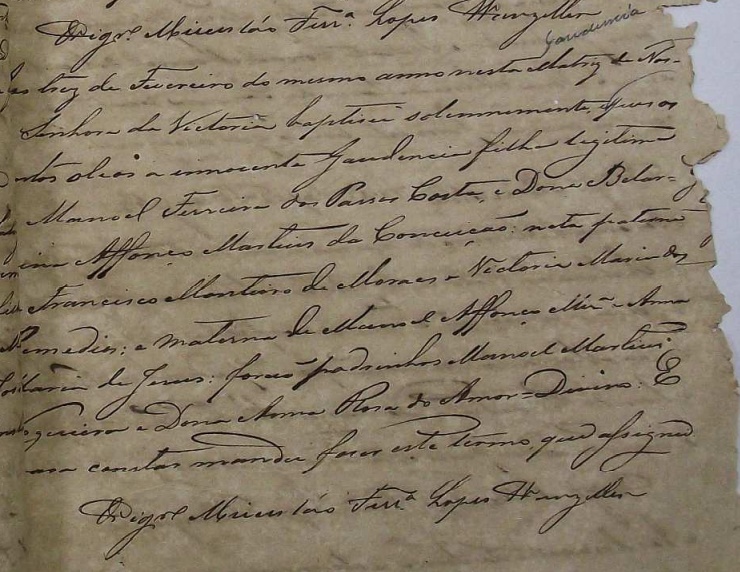 Vigrº Micesláo Ferrª Lopes Wanzeller
Gaudencia
Aos trez de Fevereiro do mesmo anno nesta Matriz de Nos-
Senhora da Victoria baptisei solemnemente, e puz os
santos oleos a innocente Gaudencia filha legitima
Manoel Ferreira dos Passos Costa, e Dona Belar-
mina Affonço Martins da Conceição: neta paterna
Francisco Monteiro de Moraes e Victoria Maria dos
Remedios; e materna de Manoel Affonço Mirª e Anna
Maria de Jesus: forão padrinhos Manoel Martins
Dona Anna Rosa do Amor-Divino. E
constar mandei fazer este termo, que assignei
Vigrº Micesláo Ferrª Lopes Wanzeller